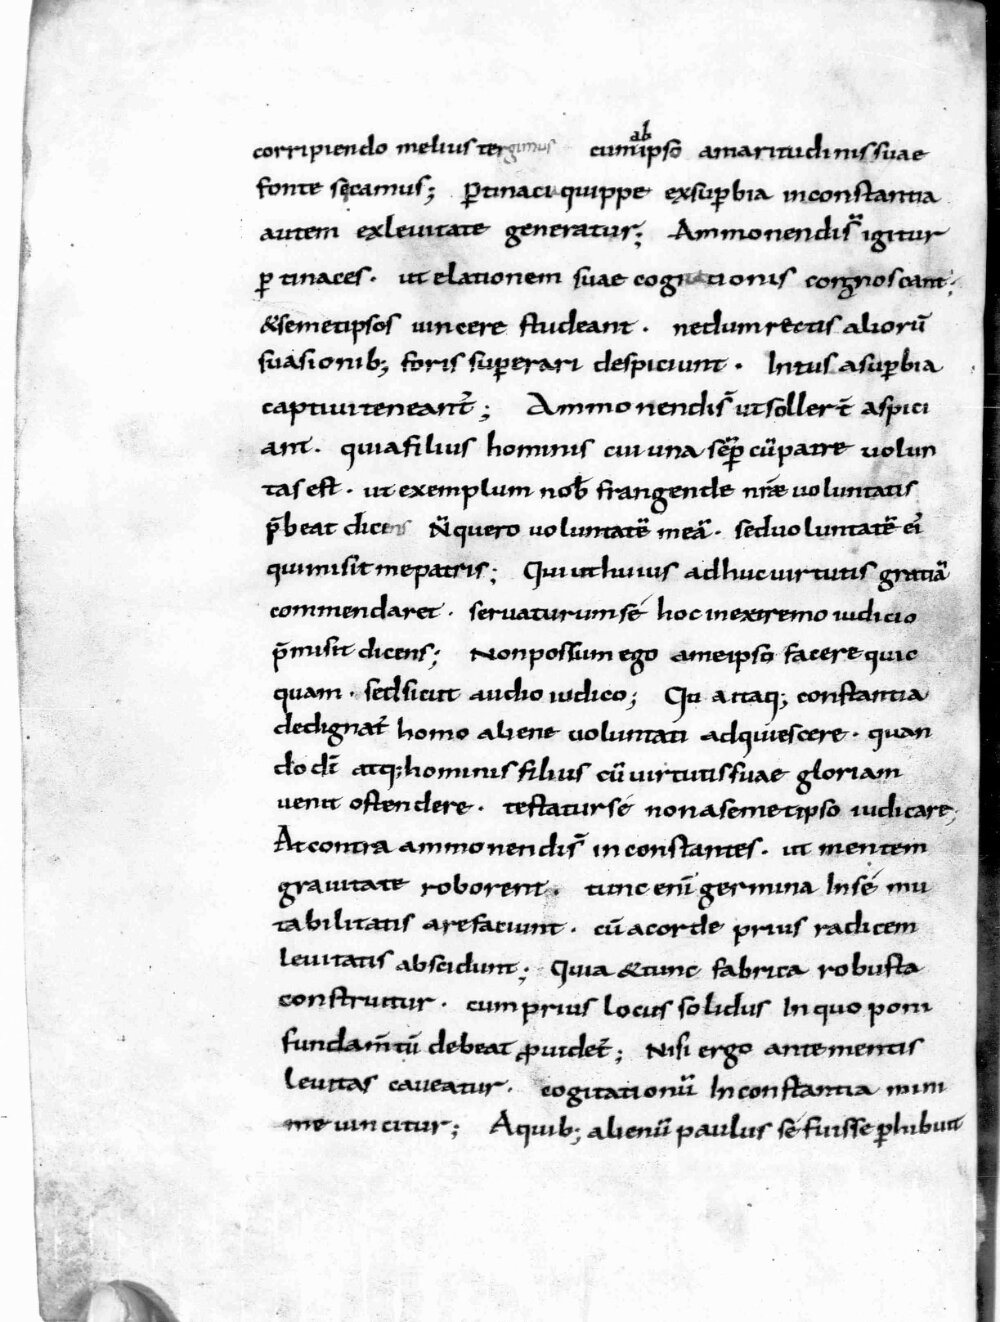 corripiendo melius tergimus cum ab ipso amaritudinis suae
fonte secamus; ꝑtinaci quippe exsuꝑbia inconstantia
autem exleuitate generatur; Ammonendis̄ igitur
ꝑtinaces · ut elationem suae cogitationis congnoscant;
&semetipsos uincere studeant · nedum rectis aliorū
suasionib; foris superari despiciunt · Intus asuꝑbia
captiui teneant̄; Ammonendis̄ ut sollert̄ aspici
ant · quia filius hominis cui una sēꝑ cū patre uolun
tas est · ut exemplum nob̄ frangende nr̄ae uoluntatis
p̄beat dicens N̄ quero uoluntatē meā · sed uoluntatē ei
qui misit me patris; Qui ut huius adhuc uirtutis gratiā
commendaret · seruaturum sé hoc in extremo iudicio
p̄misit dicens; Non possum ego ameipso facere quic
quam · sed sicut audio iudico; Qu attaq; constantia
dedignat̄ homo aliene uoluntati adquiescere · quan
do dī atq; hominis filius cū uirtutis suae gloriam
uenit ostendere · testatur sé non asemetipso iudicare;
At contra ammonendis̄ inconstantes · ut mentem
grauitate roborent · tunc enī germina In sé mu
tabilitatis arefaciunt · cū acorde prius radicem
leuitatis abscidunt; Quia &tunc fabrica robusta
construitur · cum prius locus solidus In quo poni
fundam̄tū debeat ꝓuidet̄; Nisi ergo ante mentis
leuitas caueatur · cogitationū Inconstantia mini
me uincitur; Aquib; alienū paulus sé fuisse ꝑhibuit